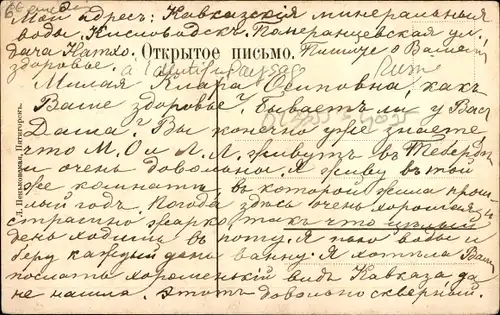 Мой адресъ: Кавказскія минеральныя
воды. Кисловодскъ. Панеранцевская ул.
дача Натхо. Открытое письмо. Пишите о Вашемъ
здоровье.
Милая Клара Осиповна, какъ
Ваше здоровье? Бываетъ ли у Васъ
Даша? Вы конечно уже знаете,
что М. О и Л. Л. живутъ въ Теберд
и очень довольны. Я живу въ той
же комнатѣ, въ которой жила прош-
лый годъ. Погода здѣсь очень хорошая и
страшно жарко, такъ что цѣлый
день ходишь въ поту. Я пью воды и
беру каждый день ванну. Я хотѣла Вамъ
послать хорошенькій видъ Кавказа, да
не нашла. Этотъ довольно скверный.
Л. Пеньковская, Пятигорскъ.